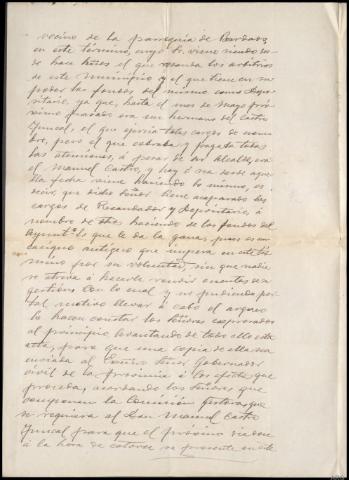 vecino de la parroquia de Bardaos
en este término, cuyo Sr. viene siendo des-
de hace años el que recauda los arbitrios
de este Municipio y el que tiene en su
poder los fondos del mismo como Depo-
sitario, ya que, hasta el mes de Mayo pró-
ximo pasado era un hermano del Castro
el que ejercía tales cargos de nom-
bre, pero el que cobraba y pagaba todas
las atenciones, a pesar de ser Alcalde, era
el Manuel Castro, y hoy o sea desde aque-
lla fecha viene haciendo lo mismo, es
decir, que dicho Señor tiene acaparados los
cargos de Recaudador y Depositario, a
nombre de otros haciendo de los fondos del
Ayuntº lo que le da la gana, pues es un
cacique antiguo que impera en este tér-
mino por su voluntad, sin que nadie
se atreva a hacerle rendir cuentas de su
gestión. Con lo cual y no pudiendo por
tal motivo llevar a cabo el arqueo
lo hacen constar los Señores expresados
al principio levantando de todo ello esta
acta, para que una copia de ella sea
enviada al Excmo Señor Gobernador
Civil de la provincia a los efectos que
proceda, acordando los Señores que
componen la Comisión gestora que
se requiera al Don Manuel Castro
para que el próximo día doce
a la hora de catorce se presente en este